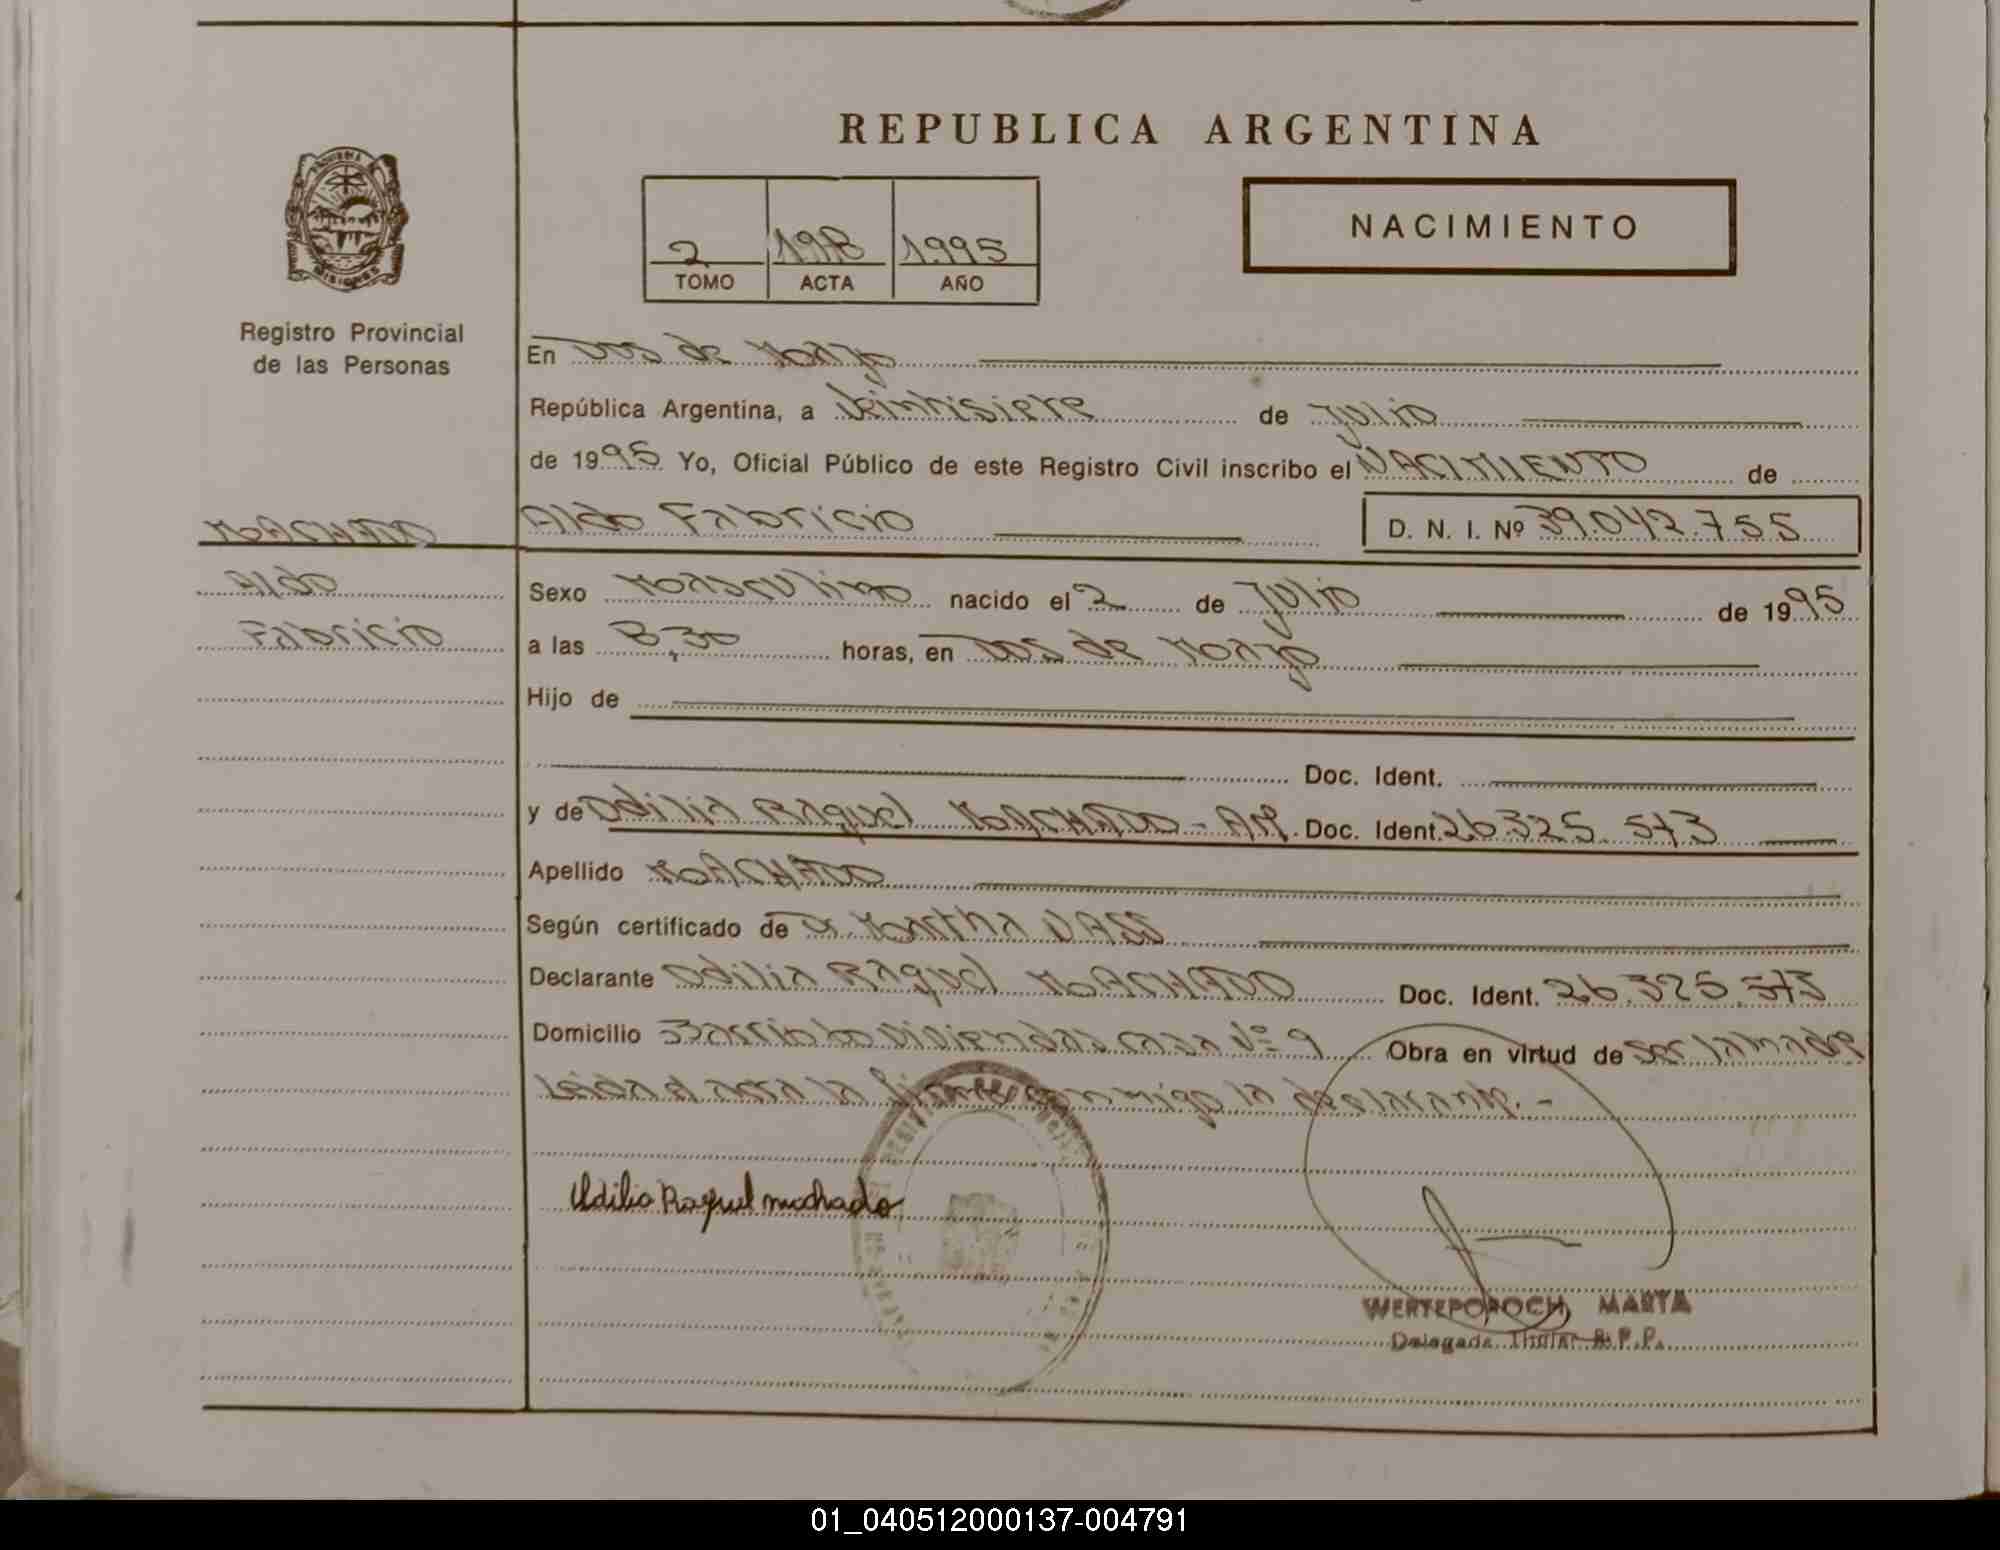 REPUBLICA ARGENTINA
NACIMIENTO
2 198 1.995
TOMO ACTA AÑO
Registro Provincial
de las Personas
En Dos de Mayo
República Argentina, a Veintisiete de Julio
de 1995 Yo, Oficial Público de este Registro Civil inscribo el NACIMIENTO de
MACHADO
Aldo Fabricio
D. N. I. Nº 39.042.755
Aldo
Fabricio
Sexo Masculino nacido el 2 de Julio de 1995
a las 8,30 horas, en Dos de Mayo
Hijo de
Doc. Ident.
y de Odilia Raquel MACHADO - Arg. Doc. Ident. 26.325.573
Apellido MACHADO
Según certificado de Martha
Declarante Odilia Raquel MACHADO Doc. Ident. 26.325.573
Domicilio Barrio 60 Viviendas casa Nº 9 Obra en virtud de ser la madre
Leida el acta la firma conmigo la declarante.-
Odilia Raquel machado
WERTEPOROCH, MARTA
Delegada Titular R.P.P.
01_040512000137-004791